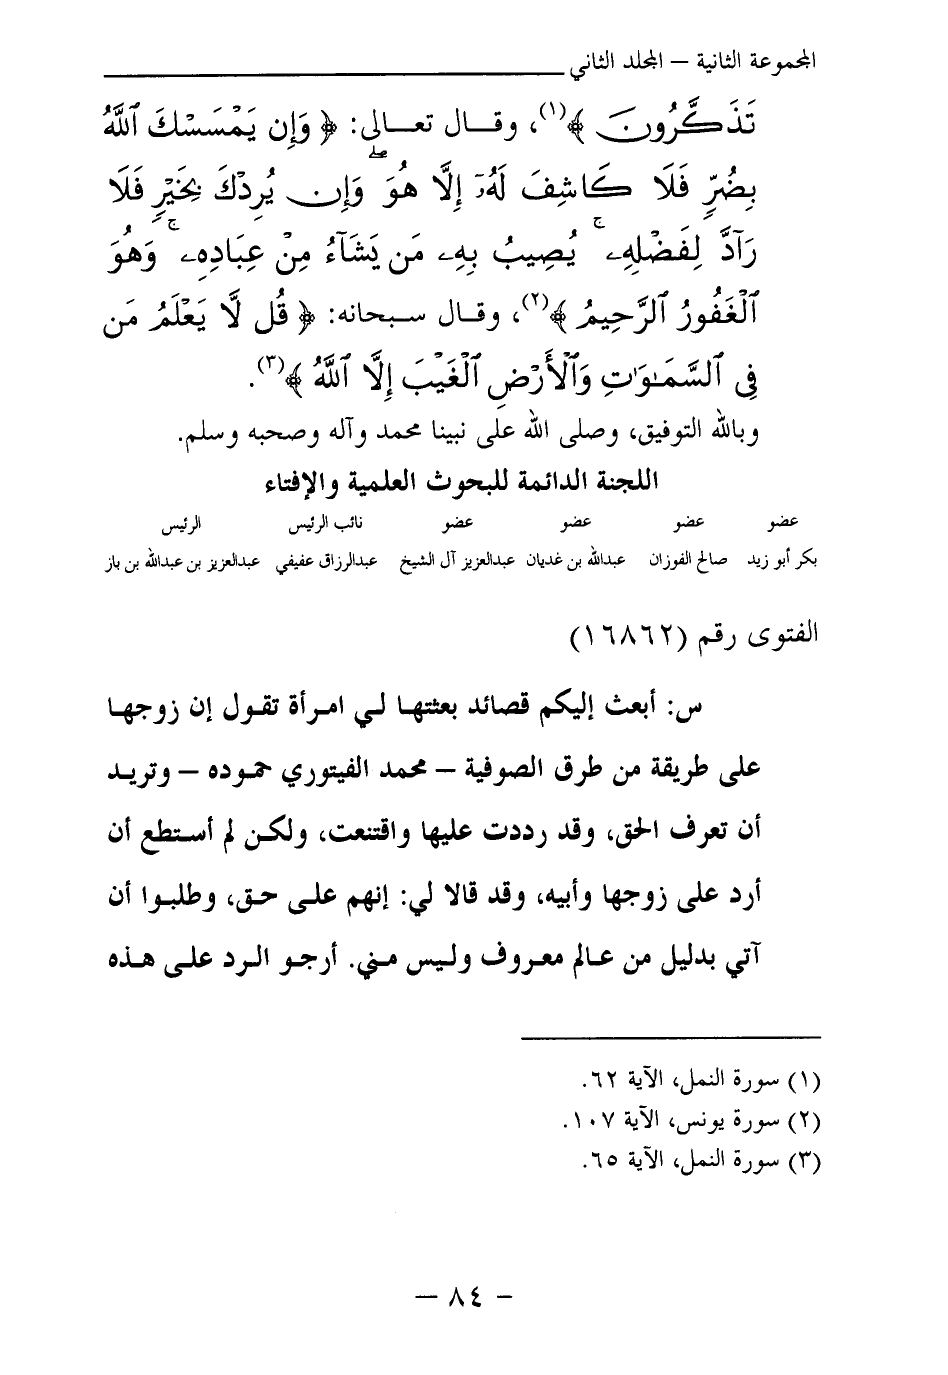 المجموعة الثانية – المجلد الثاني
تَذَكَّرُونَ ﴾(١)، وقـال تعـالى: ﴿ وَإِن يَمْسَسْكَ ٱللَّهُ
بِضُرٍّ فَلَا كَاشِفَ لَهُۥٓ إِلَّا هُوَ ۖ وَإِن يُرِدْكَ بِخَيْرٍ فَلَا
رَآدَّ لِفَضْلِهِۦ ۚ يُصِيبُ بِهِۦ مَن يَشَآءُ مِنْ عِبَادِهِۦ ۚ وَهُوَ
ٱلْغَفُورُ ٱلرَّحِيمُ ﴾(٢)، وقـال سـبحانه: ﴿ قُل لَّا يَعْلَمُ مَن
فِى ٱلسَّمَـٰوَٰتِ وَٱلْأَرْضِ ٱلْغَيْبَ إِلَّا ٱللَّهُ ﴾(٣).
وبالله التوفيق، وصلى الله على نبينا محمد وآله وصحبه وسلم.
اللجنة الدائمة للبحوث العلمية والإفتاء
عضو عضو عضو عضو نائب الرئيس الرئيس
بكر أبو زيد صالح الفوزان عبدالله بن غديان عبدالعزيز آل الشيخ عبدالرزاق عفيفي عبدالعزيز بن عبدالله بن باز
الفتوى رقم (١٦٨٦٢)
س: أبعث إليكم قصائد بعثتهـا لـي امـرأة تقـول إن زوجهـا
على طريقة من طرق الصوفية – محمد الفيتوري حموده – وتريـد
أن تعرف الحق، وقد رددت عليها واقتنعت، ولكـن لم أستطع أن
أرد على زوجها وأبيه، وقد قالا لي: إنهم علـى حـق، وطلبـوا أن
آتي بدليل من عـالم معـروف ولـيس مـني. أرجـو الـرد علـى هـذه
(١) سورة النمل، الآية ٦٢.
(٢) سورة يونس، الآية ١٠٧.
(٣) سورة النمل، الآية ٦٥.
– ٨٤ –